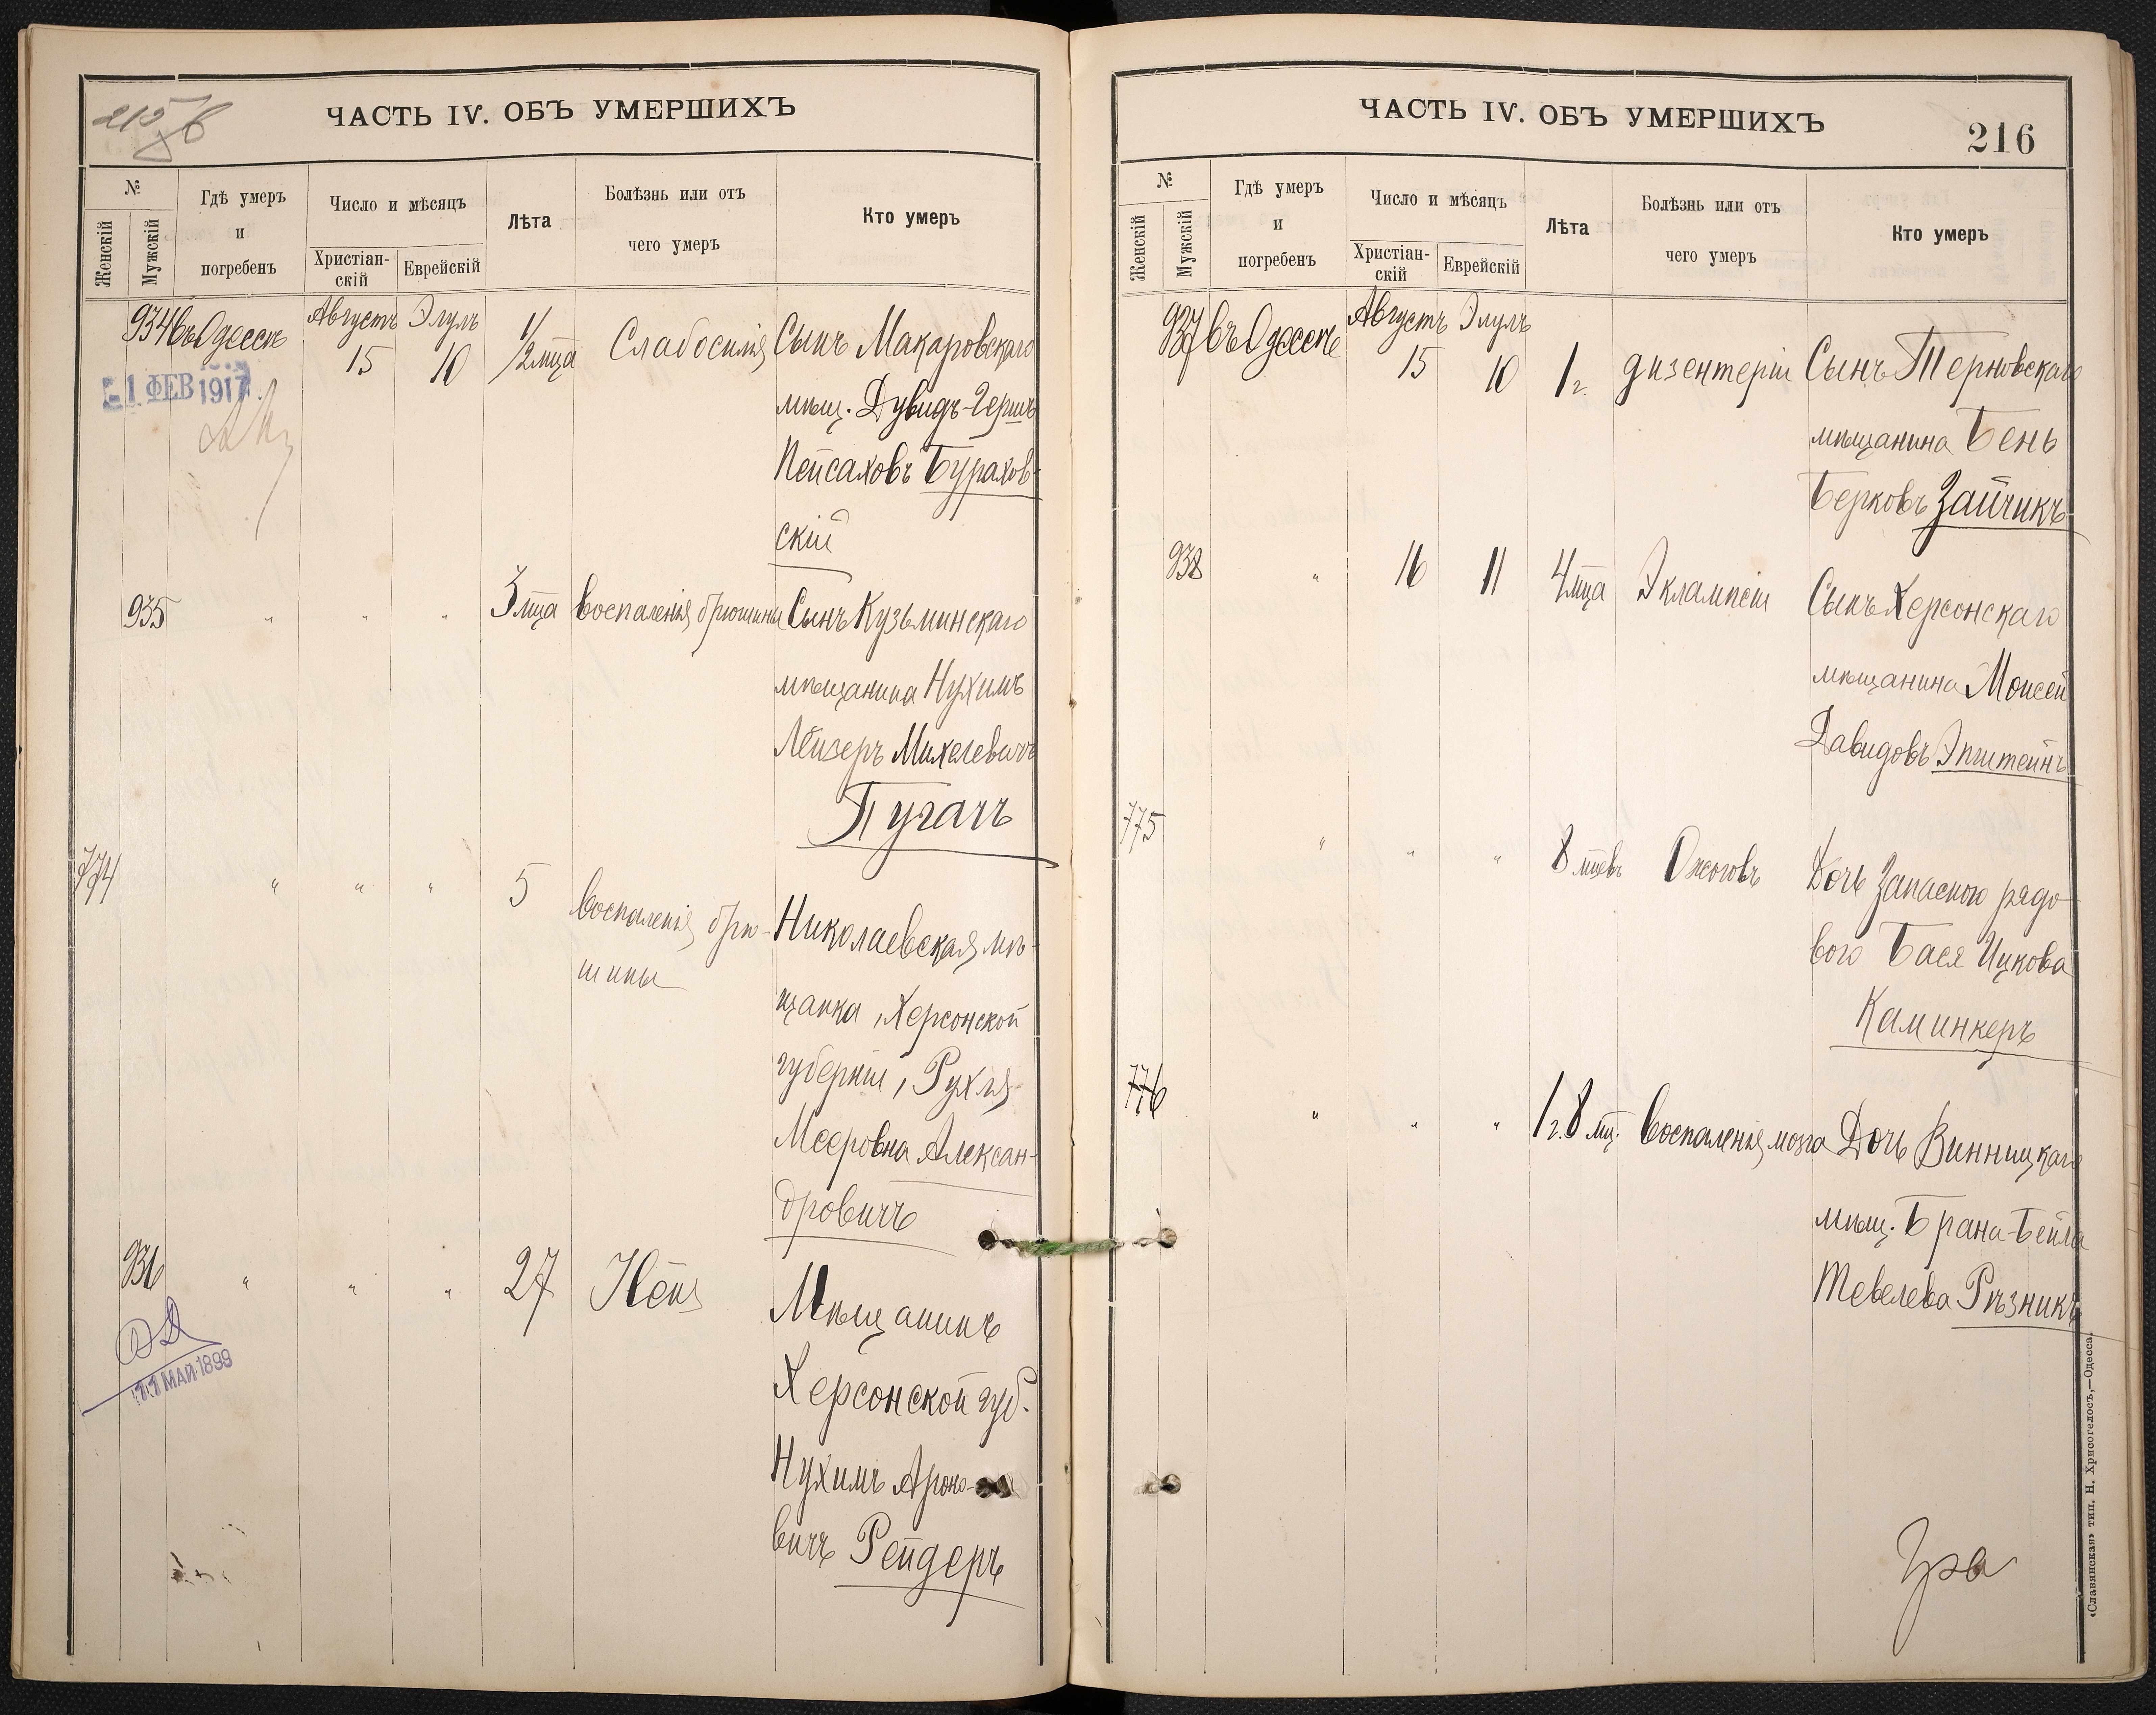 215 об
ЧАСТЬ IV. ОБЪ УМЕРШИХЪ
№
Женскій
Мужскій
Гдѣ умеръ
и
погребенъ
Число и мѣсяцъ
Христіан-
скій
Еврейскій
Лѣта
Болѣзнь или отъ
чего умеръ
Кто умеръ
934 въ Одессѣ Августъ 15 Элулъ 10 1/2 мца Слабосилія Сынъ Макаровскаго
мѣщ. Дувидъ-Гершъ
Пейсаховъ Бурахов-
скій
1 ФЕВ 1917
935 " " " 3 мца воспаленія брюшины Сынъ Кузьминскаго
мѣщанина Нухимъ
Лейзеръ Михелевичъ
Пугачъ
774 " " " 5 воспаленія брю- Николаевская мѣ-
шины щанка, Херсонской
губерніи, Рухля
Мееровна Алексан-
дровичъ
936 " " " 27 Мѣщанинъ
Херсонской губ.
НухимъАроно-
вичъ Рейдеръ
11 МАЙ 1899
ЧАСТЬ IV. ОБЪ УМЕРШИХЪ
216
№
Женскій
Мужскій
Гдѣ умеръ
и
погребенъ
Число и мѣсяцъ
Христіан-
скій
Еврейскій
Лѣта
Болѣзнь или отъ
чего умеръ
Кто умеръ
937 въ Одессѣ Августъ 15 Элулъ 10 1 г. дизентеріи Сынъ Терновскаго
мѣщанина Бень
Берковъ Зайчикъ
938 " 16 11 4 мца Эклампсіи Сынъ Херсонскаго
мѣщанина Моисей
Давидовъ Эпштейнъ
775 " " " 8 мцевъ Ожоговъ Дочь Запасного рядо-
вого Бася Ицкова
Каминкеръ
776 " " " 1 г. 8 мц. воспаленія мозга Дочь Винницкаго
мѣщ. Брана-Бейла
Тевелева Рѣзникъ
«Славянская» тип. Н. Хрисогелосъ,—Одесса.